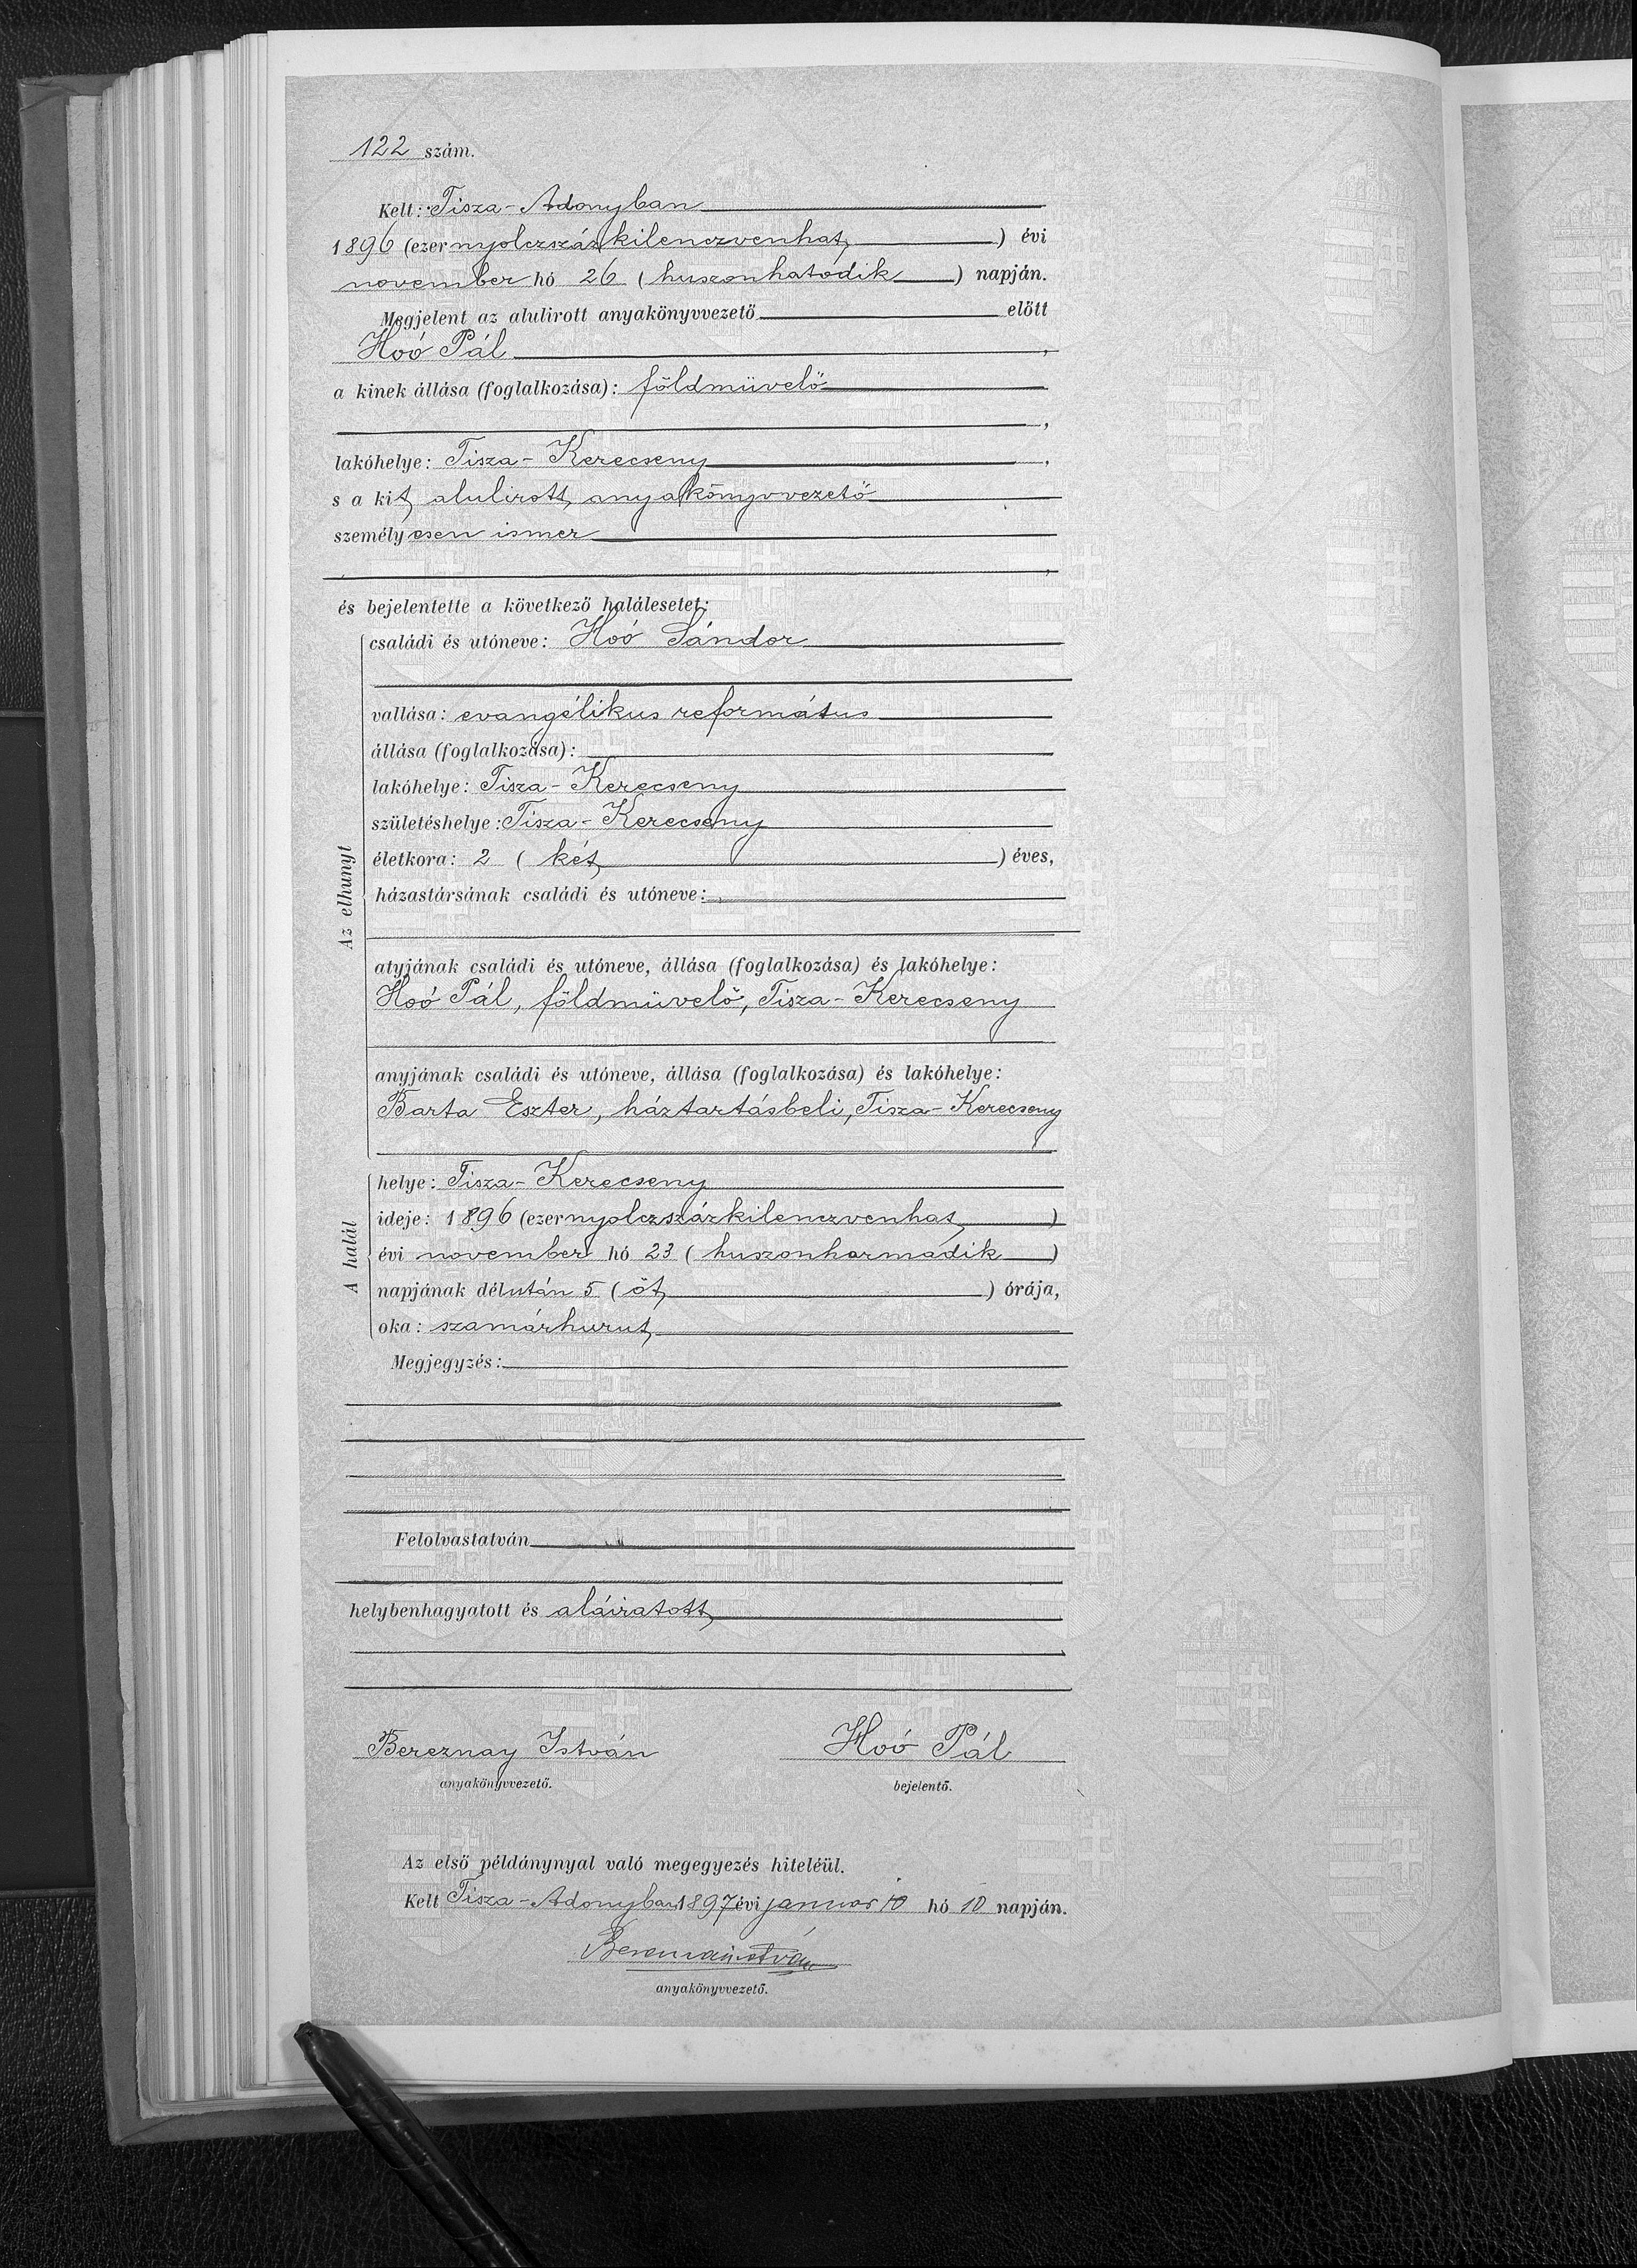 122 szám.
Kelt: Tisza-Adonyban
1896 (ezernyolczszázkilenczvenhat) évi
november hó 26 (huszonhatodik) napján.
Megjelent az alulirott anyakönyvvezető előtt
Hoó Pál,
a kinek állása (foglalkozása): földmüvelő
,
lakóhelye: Tisza-Kerecseny,
s a kit alulirott anyakönyvvezető
személyesen ismer
,
és bejelentette a következő halálesetet:
Az elhunyt
családi és utóneve: Hoó Sándor
vallása: evangélikus református
állása (foglalkozása):
lakóhelye: Tisza-Kerecseny
születéshelye: Tisza-Kerecseny
életkora: 2 (két) éves,
házastársának családi és utóneve:
atyjának családi és utóneve, állása (foglalkozása) és lakóhelye:
Hoó Pál, földmüvelő, Tisza-Kerecseny
anyjának családi és utóneve, állása (foglalkozása) és lakóhelye:
Barta Eszter, háztartásbeli, Tisza-Kerecseny
A halál
helye: Tisza-Kerecseny
ideje: 1896 (ezernyolczszázkilenczvenhat)
évi november hó 23 (huszonharmadik)
napjának délután 5 (öt) órája,
oka: szamárhurut
Megjegyzés:
Felolvastatván
helybenhagyatott és aláiratott
Bereznay István Hoó Pál
anyakönyvvezető. bejelentő.
Az első példánynyal való megegyezés hiteléül.
Kelt Tisza-Adonyban 1897 évi januar 10 hó 10 napján.
Bereznay István
anyakönyvvezető.